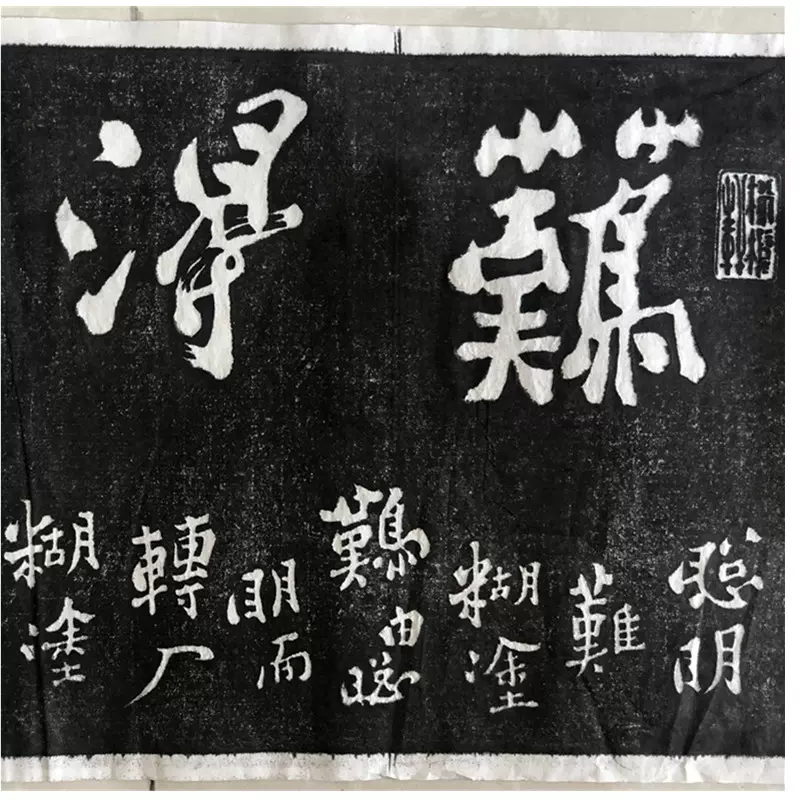 難
得
聰明
難
糊塗
難由聰
明而
轉入
糊塗